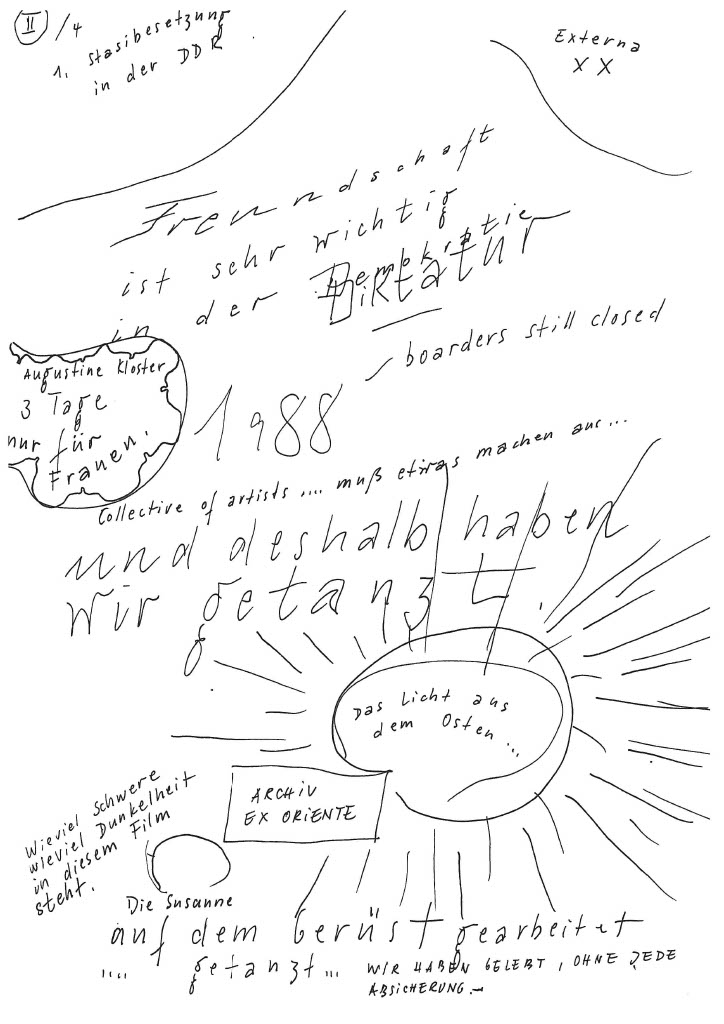 II/4
1. Stasibesetzung
in der DDR.
Externa
XX
Freundschaft
ist sehr wichtig
in der Diktatur
boarders still closed
Augustine Kloster
3 Tage
nur für
Frauen.
1988
Collective of artists .... muß etwas machen aus...
und deshalb haben
wir getanzt.
Das Licht aus
dem Osten...
ARCHIV
EX ORIENTE
Wieviel Schwere
wieviel Dunkelheit
in diesem Film
steht.
Die Susanne
auf dem Gerüst gearbeitet
.... getanzt... WIR HABEN GELEBT, OHNE JEDE
ABSICHERUNG.–